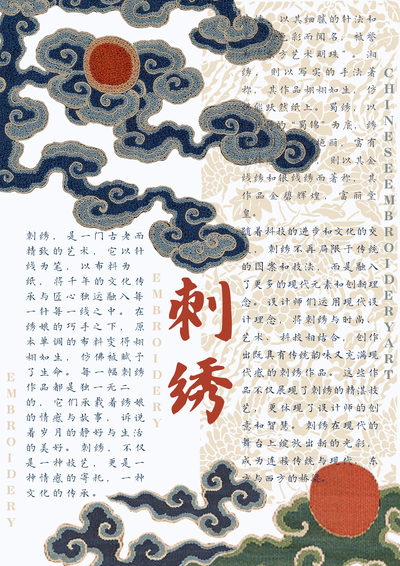 刺绣，是一门古老而
精致的艺术，它以针
线为笔，以布料为
纸，将千年的文化传
承与匠心独运融入每
一针每一线之中。在
绣娘的巧手之下，原
本单调的布料变得栩
栩如生，仿佛被赋予
了生命。每一幅刺绣
作品都是独一无二
的，它们承载着绣娘
的情感与故事，诉说
着岁月的静好与生活
的美好。刺绣，不仅
是一种技艺，更是一
种情感的寄托，一种
文化的传承。
EMBROIDERY
EMBROIDERY
刺绣
以其细腻的针法和
色彩而闻名，被誉
方艺术明珠”。湘
绣，则以写实的手法著
称，其作品栩栩如生，仿
能跃然纸上。蜀绣，以
的“蜀锦”为底，绣
艳丽，富有
则以其金
线绣和银线绣而著称，其
作品金碧辉煌，富丽堂
皇。
随着科技的进步和文化的交
刺绣不再局限于传统
的图案和技法，而是融入
了更多的现代元素和创新理
念。设计师们运用现代设
计理念，将刺绣与时尚、
艺术、科技相结合，创作
出既具有传统韵味又充满现
代感的刺绣作品。这些作
品不仅展现了刺绣的精湛技
艺，更体现了设计师的创
意和智慧。刺绣在现代的
舞台上绽放出新的光彩，
成为连接传统与现代、东
方与西方的桥梁。
CHINESEEMBROIDERYART